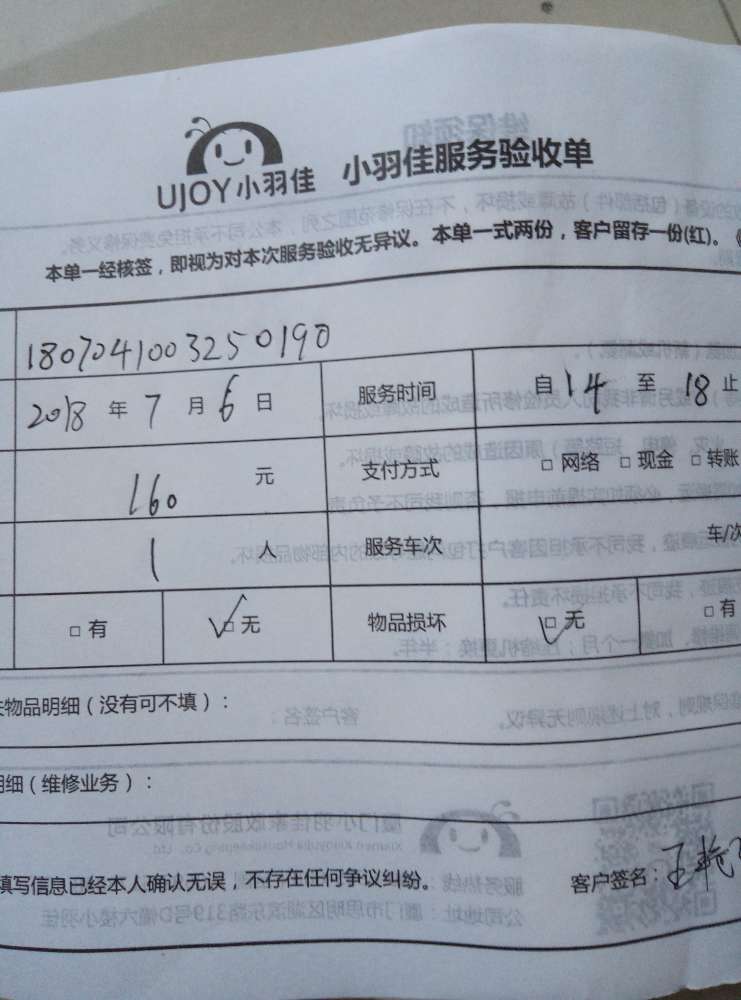 UJOY小羽佳 小羽佳服务验收单
本单一经核签，即视为对本次服务验收无异议。本单一式两份，客户留存一份(红)。
1807041003250190
2018 年 7 月 6 日 服务时间 自 14 至 18 止
160 元 支付方式 □ 网络 □ 现金 □ 转账
1 人 服务车次 车/次
□ 有 □ 无 物品损坏 □ 无 □ 有
物品明细（没有可不填）：
明细（维修业务）：
填写信息已经本人确认无误，不存在任何争议纠纷。 客户签名：王艳